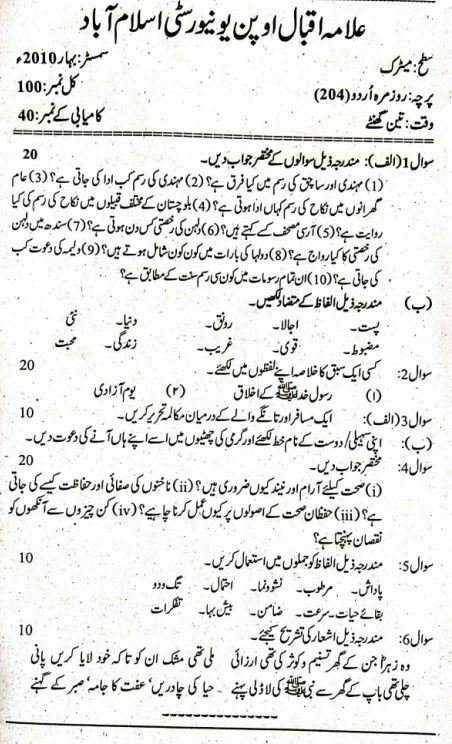 علامہ اقبال اوپن یونیورسٹی اسلام آباد
سطح: میٹرک سمسٹر: بہار 2010ء
پرچہ: روزمرہ اُردو (204) کل نمبر: 100
وقت: تین گھنٹے کامیابی کے نمبر: 40
سوال 1 (الف): مندرجہ ذیل سوالوں کے مختصر جواب دیں۔ 20
(1) مہندی اور ساچق کی رسم میں کیا فرق ہے؟ (2) مہندی کی رسم کب ادا کی جاتی ہے؟ (3) عام
گھرانوں میں نکاح کی رسم کہاں ادا ہوتی ہے؟ (4) بلوچستان کے مختلف قبیلوں میں نکاح کی رسم کی کیا
روایت ہے؟ (5) آرسی مصحف کسے کہتے ہیں؟ (6) دلہن کی رخصتی کس دن ہوتی ہے؟ (7) سندھ میں دلہن
کی رخصتی کا کیا رواج ہے؟ (8) دولہا کی بارات میں کون کون شامل ہوتے ہیں؟ (9) ولیمہ کی دعوت کب
کی جاتی ہے؟ (10) ان تمام رسومات میں کون سی رسم سنت کے مطابق ہے؟
(ب) مندرجہ ذیل الفاظ کے متضاد لکھیں۔
پست۔ اجالا۔ رونق۔ دنیا۔ نئی
مضبوط۔ قوی۔ غریب۔ زندگی۔ محبت
سوال 2: کسی ایک سبق کا خلاصہ اپنے لفظوں میں لکھئے۔ 20
(۱) رسول خدا ﷺ کے اخلاق (۲) یوم آزادی
سوال 3 (الف): ایک مسافر اور تانگے والے کے درمیان مکالمہ تحریر کریں۔ 10
(ب): اپنی سہیلی/دوست کے نام خط لکھئے اور گرمی کی چھٹیوں میں اسے اپنے ہاں آنے کی دعوت دیں۔
سوال 4: مختصر جواب دیں۔ 20
(i) صحت کیلئے آرام اور نیند کیوں ضروری ہیں؟ (ii) ناخنوں کی صفائی اور حفاظت کیسے کی جاتی
ہے؟ (iii) حفظان صحت کے اصولوں پر کیوں عمل کرنا چاہیے؟ (iv) کن چیزوں سے آنکھوں کو
نقصان پہنچتا ہے؟
سوال 5: مندرجہ ذیل الفاظ کو جملوں میں استعمال کریں۔ 10
پاداش۔ مرطوب۔ نشوونما۔ احتمال۔ تگ و دو
بقائے حیات۔ سرعت۔ ضامن۔ بیش بہا۔ تفکرات
سوال 6: مندرجہ ذیل اشعار کی تشریح کیجئے۔ 10
وہ زہرا جن کے گھر تسنیم و کوثر کی تھی ارزانی ملی تھی مشک ان کو تا کہ خود لایا کریں پانی
چلی تھی باپ کے گھر سے نبی ﷺ کی لاڈلی پہنے حیا کی چادریں، عفت کا جامہ، صبر کے گہنے